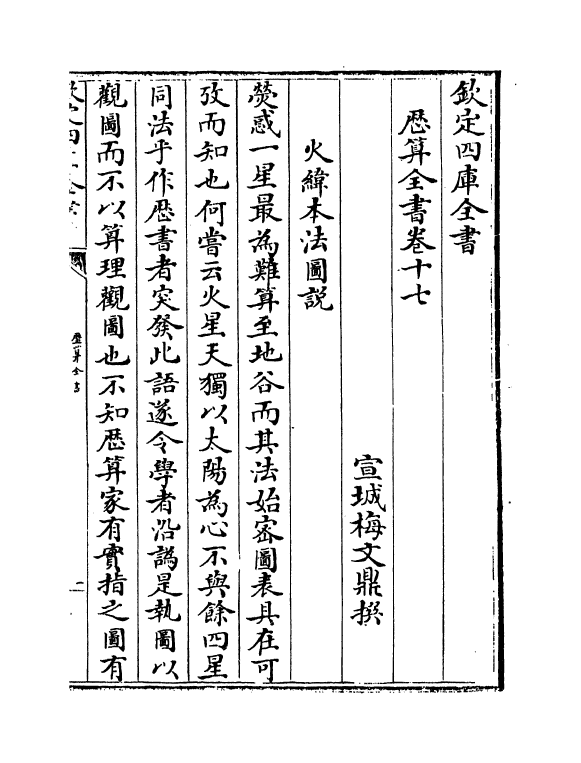 欽定四庫全書
厯算全書卷十七
宣城梅文鼎撰
火緯本法圖説
熒惑一星最為難算至地谷而其法始密圖表具在可
攷而知也何嘗云火星天獨以太陽為心不與餘四星
同法乎作厯書者突發此語遂令學者沿譌是執圖以
觀圖而不以算理觀圖也不知厯算家有實指之圖有
厯算全書